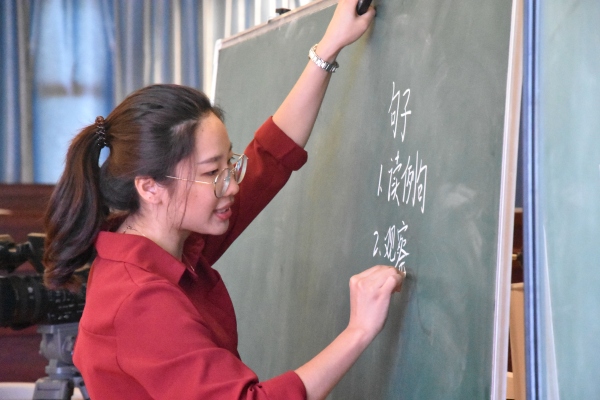 句子
1.读例句
2.观察